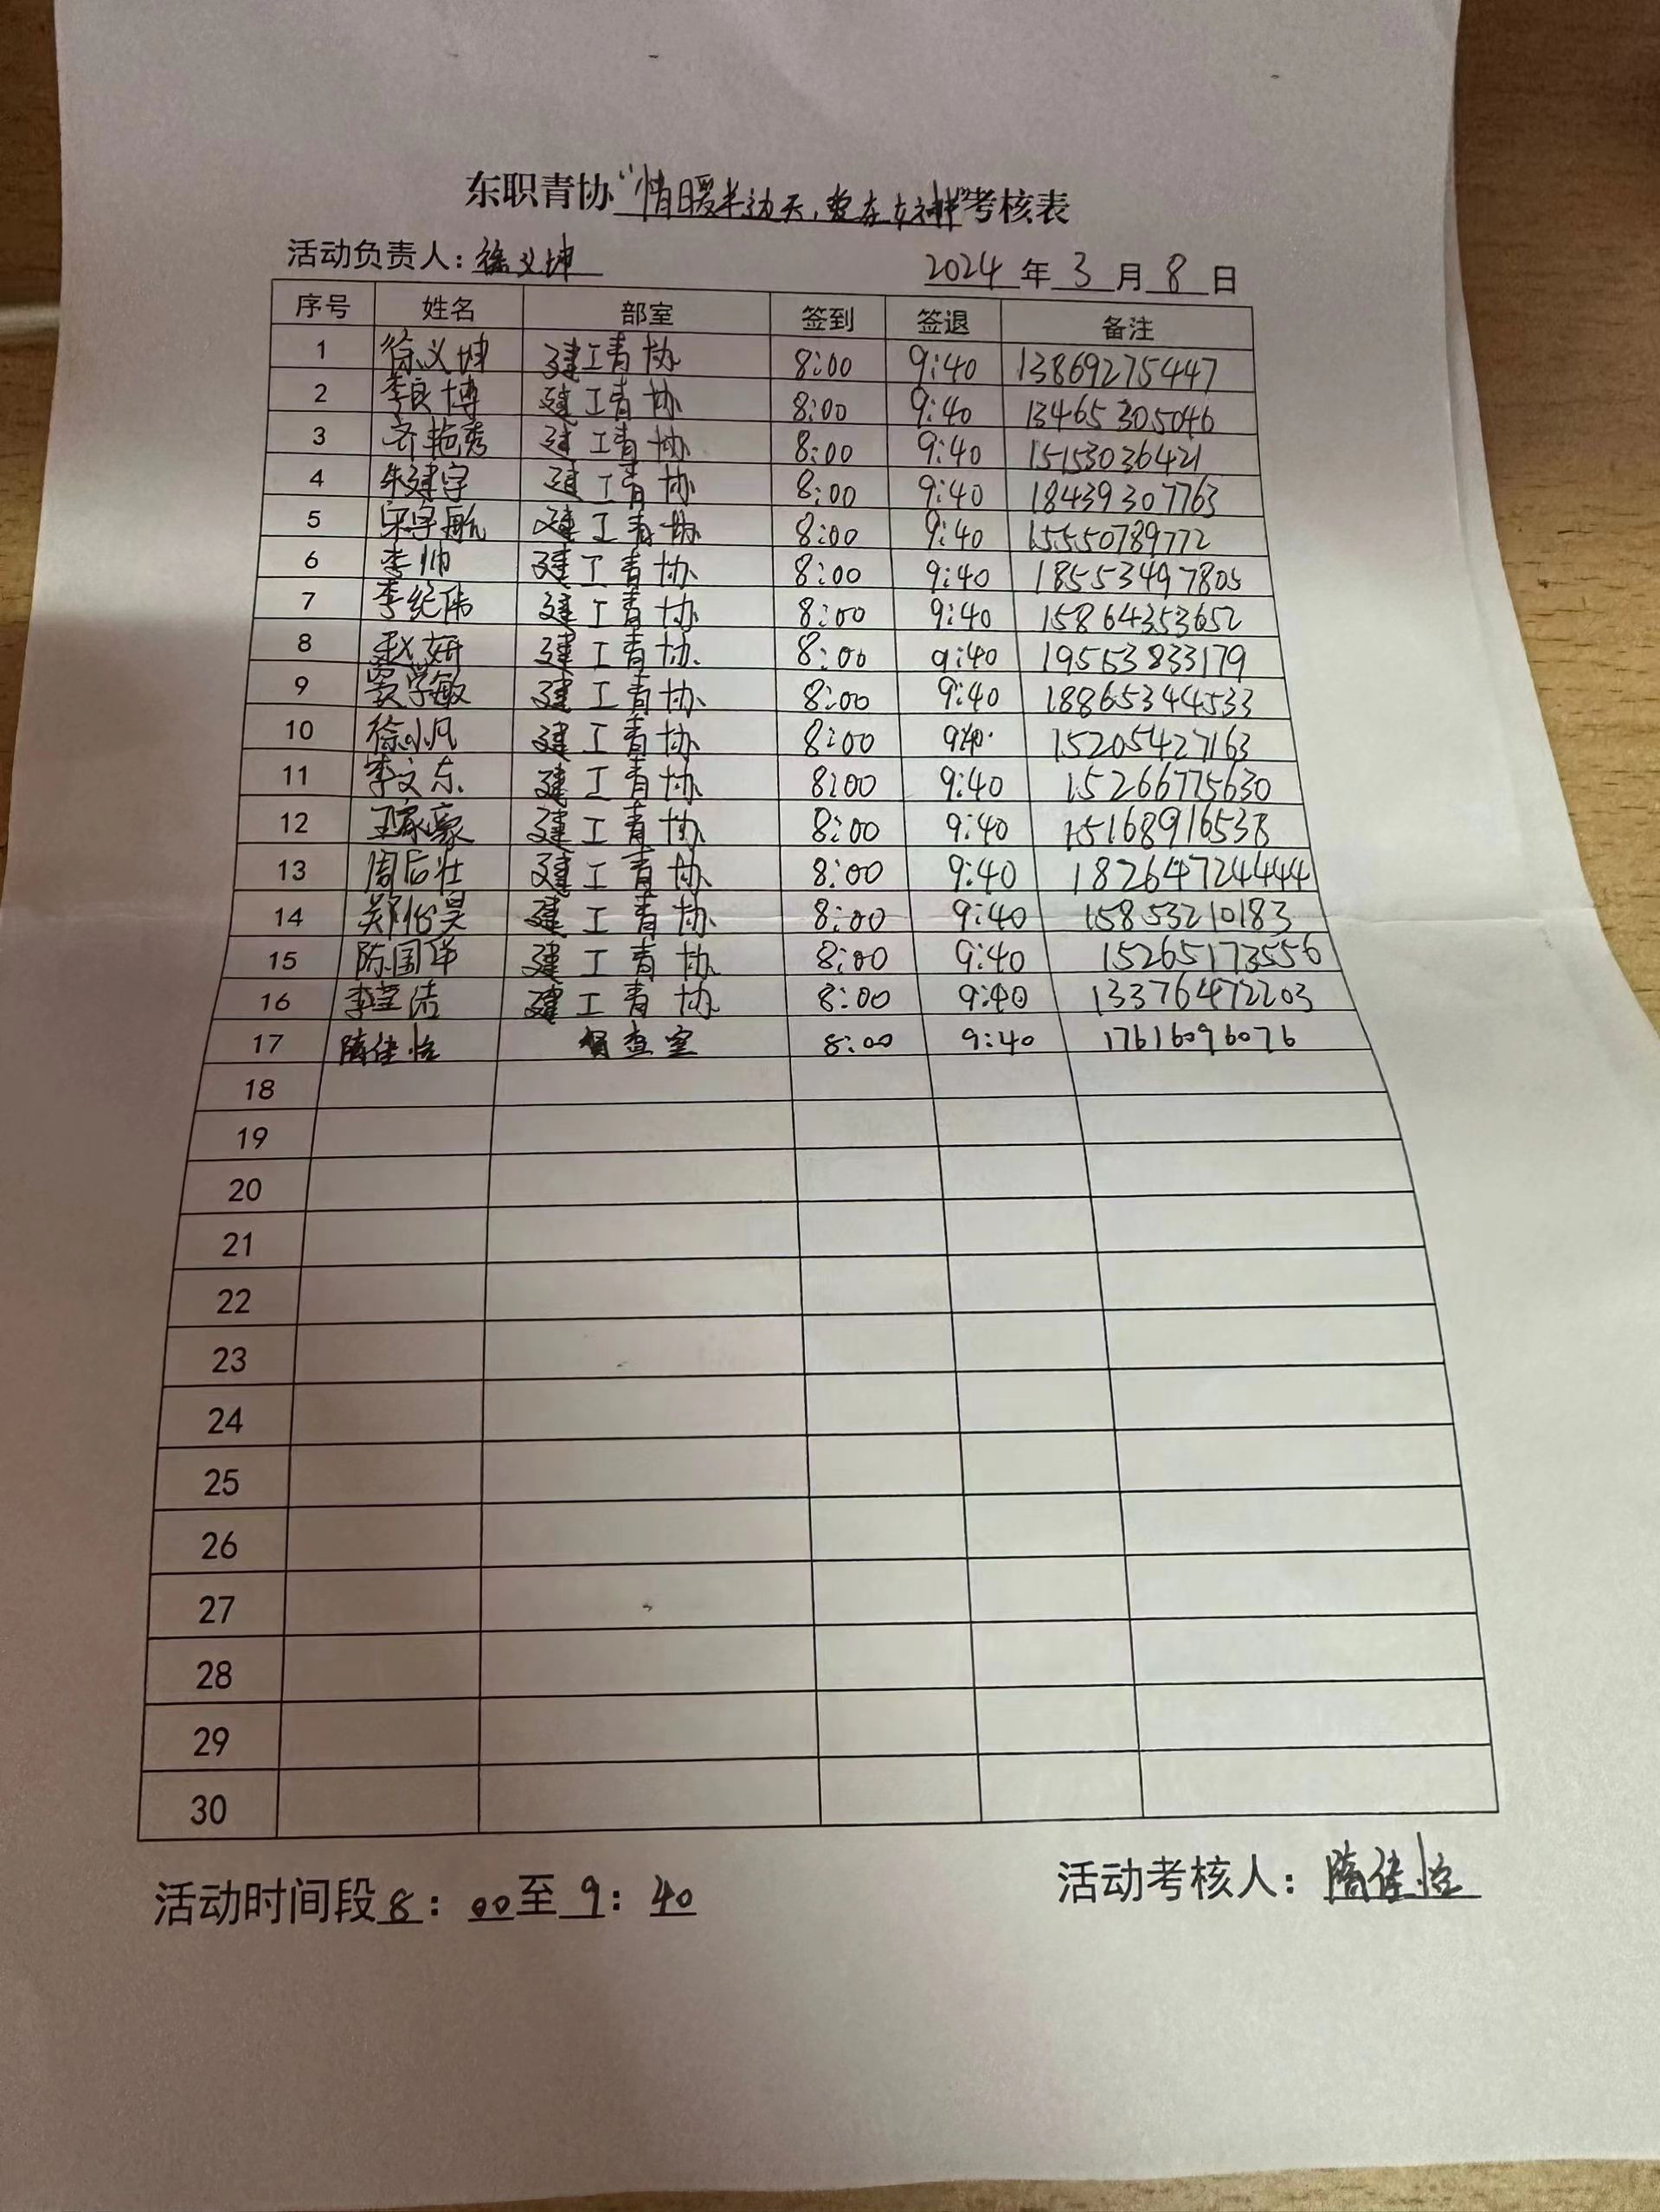 东职青协“情暖半边天,爱在女神”考核表
活动负责人:徐义坤 2024年3月8日
序号 姓名 部室 签到 签退 备注
1 徐义坤 建工青协 8:00 9:40 13869275447
2 李良博 建工青协 8:00 9:40 13465305046
3 齐艳秀 建工青协 8:00 9:40 15153036421
4 朱建宇 建工青协 8:00 9:40 18439307763
5 宋宇航 建工青协 8:00 9:40 15550789772
6 李帅 建工青协 8:00 9:40 18553497805
7 李纪伟 建工青协 8:00 9:40 15864353652
8 赵妍 建工青协 8:00 9:40 19553833179
9 窦学敏 建工青协 8:00 9:40 18865344533
10 徐小凡 建工青协 8:00 9:40 15205427163
11 李文东 建工青协 8:00 9:40 15266775630
12 王家豪 建工青协 8:00 9:40 15168916538
13 周后壮 建工青协 8:00 9:40 18264724444
14 建工青协 8:00 9:40 15853210183
15 陈国华 建工青协 8:00 9:40 15265173556
16 建工青协 8:00 9:40 13376472203
17 隋佳怡 督查室 8:00 9:40 17616096076
18
19
20
21
22
23
24
25
26
27
28
29
30
活动时间段8:00至9:40 活动考核人:隋佳怡